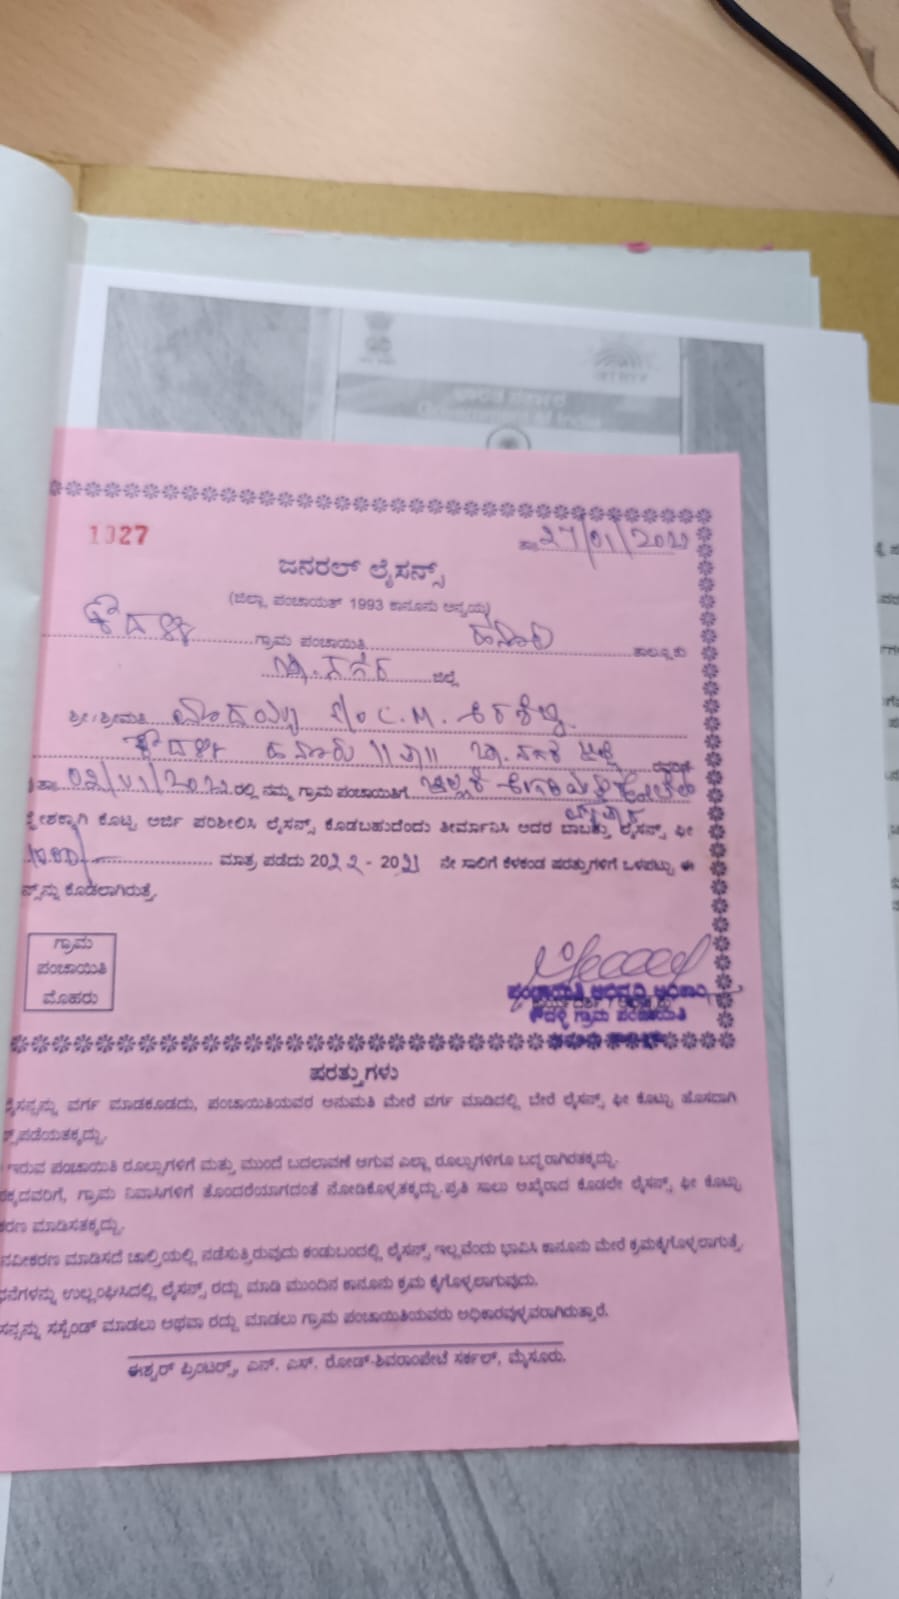 ಭಾರತ ಸರ್ಕಾರ
Government of India
1027
ತಾ 27/01/202
ಜನರಲ್ ಲೈಸನ್ಸ್
(ಜಿಲ್ಲಾ ಪಂಚಾಯತ್ 1993 ಕಾನೂನು ಅನ್ವಯ)
ಕೌದಳ್ಳಿ ಗ್ರಾಮ ಪಂಚಾಯಿತಿ ಹನೂರು ತಾಲ್ಲೂಕು
ಚಾ.ನಗರ ಜಿಲ್ಲೆ
ಶ್ರೀ/ಶ್ರೀಮತಿ ಮಾದಯ್ಯ S/o C.M.
ಕೌದಳ್ಳಿ ಹನೂರು ||ತಾ|| ಚಾ.ನಗರ ಜಿಲ್ಲೆ
ತಾ ರಲ್ಲಿ ನಮ್ಮ ಗ್ರಾಮ ಪಂಚಾಯಿತಿಗೆ ಚಿಲ್ಲರೆ
ದ್ದೇಶಕ್ಕಾಗಿ ಕೊಟ್ಟ ಅರ್ಜಿ ಪರಿಶೀಲಿಸಿ ಲೈಸನ್ಸ್ ಕೊಡಬಹುದೆಂದು ತೀರ್ಮಾನಿಸಿ ಅದರ ಬಾಬತ್ತು ಲೈಸನ್ಸ್ ಫೀ
ಮಾತ್ರ ಪಡೆದು 2022 - 202 ನೇ ಸಾಲಿಗೆ ಕೆಳಕಂಡ ಷರತ್ತುಗಳಿಗೆ ಒಳಪಟ್ಟು ಈ
ನ್ಸ್‌ನ್ನು ಕೊಡಲಾಗಿರುತ್ತೆ.
ಗ್ರಾಮ
ಪಂಚಾಯಿತಿ
ಮೊಹರು
ಪಂಚಾಯಿತಿ ಅಭಿವೃದ್ಧಿ ಅಧಿಕಾರಿ
ಕೌದಳ್ಳಿ ಗ್ರಾಮ ಪಂಚಾಯಿತಿ
ಷರತ್ತುಗಳು
ಲೈಸನ್ಸನ್ನು ವರ್ಗ ಮಾಡಕೂಡದು, ಪಂಚಾಯಿತಿಯವರ ಅನುಮತಿ ಮೇರೆ ವರ್ಗ ಮಾಡಿದಲ್ಲಿ ಬೇರೆ ಲೈಸನ್ಸ್ ಫೀ ಕೊಟ್ಟು ಹೊಸದಾಗಿ
ನ್ಸ್‌ಪಡೆಯತಕ್ಕದ್ದು.
ಇರುವ ಪಂಚಾಯಿತಿ ರೂಲ್ಸುಗಳಿಗೆ ಮತ್ತು ಮುಂದೆ ಬದಲಾವಣೆ ಆಗುವ ಎಲ್ಲಾ ರೂಲ್ಸುಗಳಿಗೂ ಬದ್ಧರಾಗಿರತಕ್ಕದ್ದು.
ಕ್ಕದವರಿಗೆ, ಗ್ರಾಮ ನಿವಾಸಿಗಳಿಗೆ ತೊಂದರೆಯಾಗದಂತೆ ನೋಡಿಕೊಳ್ಳತಕ್ಕದ್ದು. ಪ್ರತಿ ಸಾಲು ಆಖೈರಾದ ಕೂಡಲೇ ಲೈಸನ್ಸ್ ಫೀ ಕೊಟ್ಟು
ಕರಣ ಮಾಡಿಸತಕ್ಕದ್ದು.
ನವೀಕರಣ ಮಾಡಿಸದೆ ಚಾಲ್ತಿಯಲ್ಲಿ ನಡೆಸುತ್ತಿರುವುದು ಕಂಡುಬಂದಲ್ಲಿ ಲೈಸನ್ಸ್ ಇಲ್ಲವೆಂದು ಭಾವಿಸಿ ಕಾನೂನು ಮೇರೆ ಕ್ರಮಕೈಗೊಳ್ಳಲಾಗುತ್ತೆ.
ಧನೆಗಳನ್ನು ಉಲ್ಲಂಘಿಸಿದಲ್ಲಿ ಲೈಸನ್ಸ್ ರದ್ದು ಮಾಡಿ ಮುಂದಿನ ಕಾನೂನು ಕ್ರಮ ಕೈಗೊಳ್ಳಲಾಗುವುದು.
ಸನ್ಸನ್ನು ಸಸ್ಪೆಂಡ್ ಮಾಡಲು ಅಥವಾ ರದ್ದು ಮಾಡಲು ಗ್ರಾಮ ಪಂಚಾಯಿತಿಯವರು ಅಧಿಕಾರವುಳ್ಳವರಾಗಿರುತ್ತಾರೆ.
ಈಶ್ವರ್ ಪ್ರಿಂಟರ್ಸ್, ಎನ್. ಎಸ್. ರೋಡ್-ಶಿವರಾಂಪೇಟೆ ಸರ್ಕಲ್, ಮೈಸೂರು.